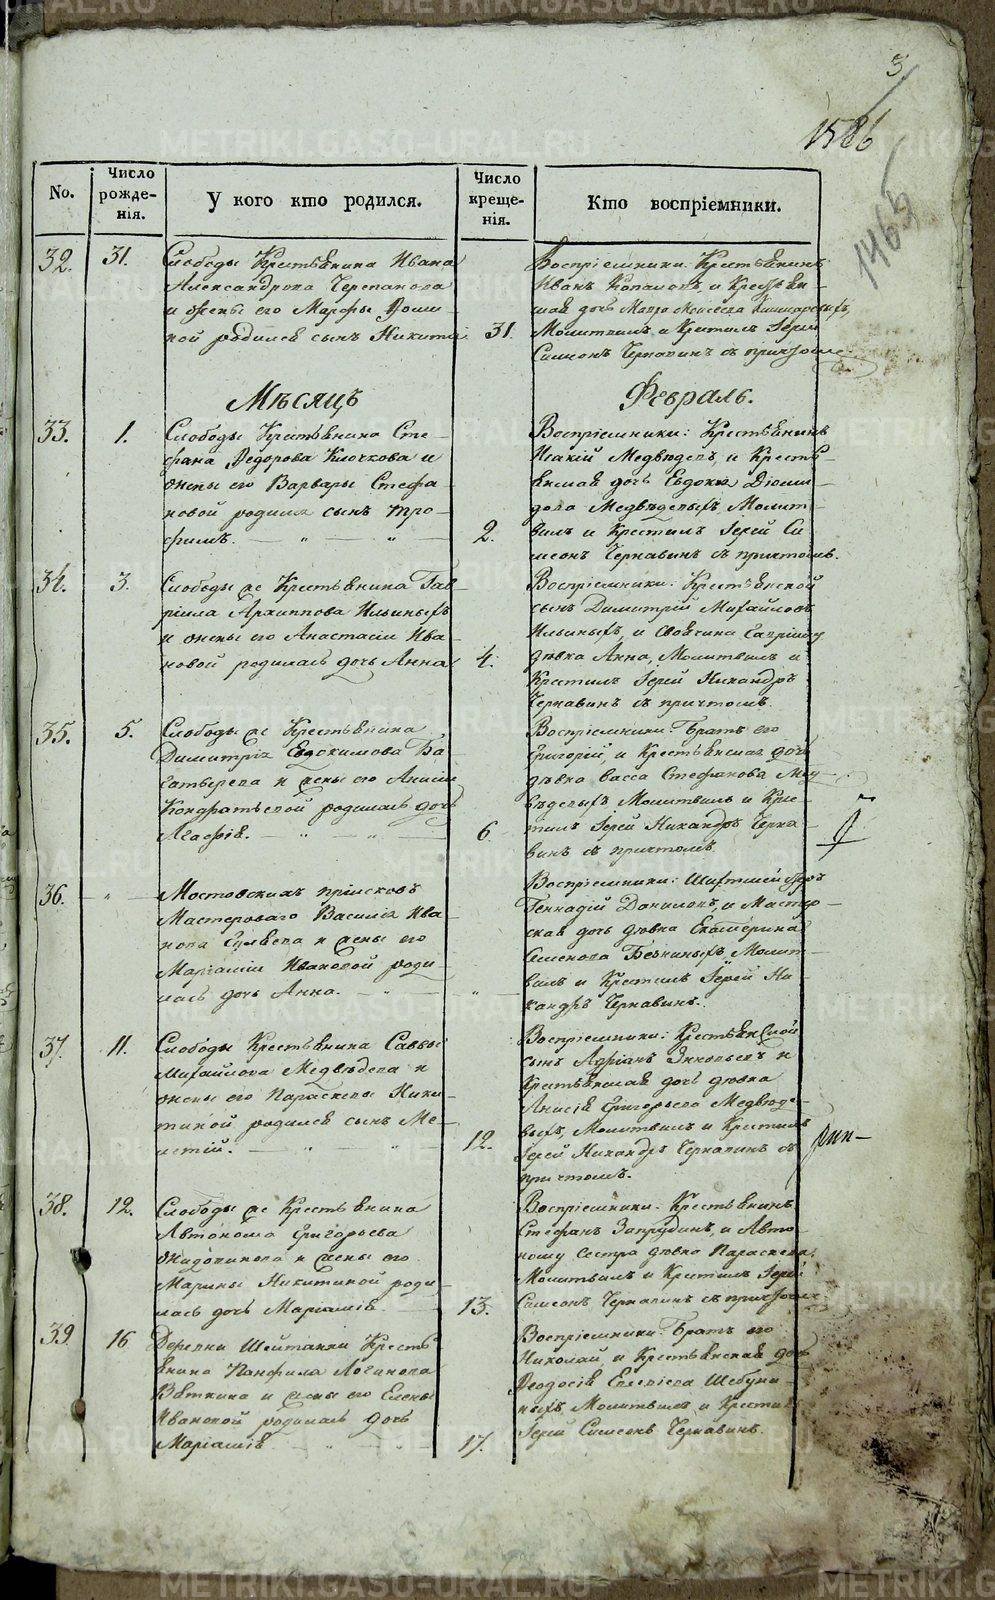 3
1586
1465
No.
Число рожде-нія.
У кого кто родился.
Число креще-нія.
Кто воспріемники.
32. 31.
Слободы Крестьянина Ивана
Александрова Черепанова
и жены его Марфы Фоми-
ной родился сынъ Никита
31.
Воспріемники: Крестьянинъ
Иванъ и Крестьян-
ская дочь Мавра Моисеева
Молитвилъ и Крестилъ Іерей
Симеонъ Чернавинъ съ причтомъ.
Мѣсяцъ Февраль.
33. 1.
Слободы Крестьянина Сте-
фана Федорова Клочкова и
жены его Варвары Стефа-
новой родился сынъ Тро-
фимъ.
2.
Воспріемники: Крестьянинъ
Исакій Медвѣдевъ, и Кресть-
янская дочь Евдокія Діоми-
дова Медвѣдевыхъ, Молит-
вилъ и Крестилъ Іерей Си-
меонъ Чернавинъ съ причтомъ.
34. 3.
Слободы же Крестьянина Гав-
ріила Архиппова Ильиныхъ
и жены его Анастасіи Ива-
новой родилась дочь Анна
4.
Воспріемники: Крестьянской
сынъ Димитрій Михайловъ
Ильиныхъ, и
дѣвка Анна, Молитвилъ и
Крестилъ Іерей Никандръ
Чернавинъ съ причтомъ.
35. 5.
Слободы же Крестьянина
Димитрія Евдокимова Ба-
гатырева и жены его Анисіи
Кондратьевой родилась дочь
Агафія.
6
Воспріемники: Братъ его
Григорій, и Крестьянская дочь
дѣвка Васса Стефанова Мед-
вѣдевыхъ Молитвилъ и Кре-
стилъ Іерей Никандръ Черна-
винъ съ причтомъ.
36. "
Мостовскихъ пріисковъ
Мастероваго Василія Ива-
нова и жены его
Маріаміи Ивановой роди-
лась дочь Анна.
"
Воспріемники:
Геннадій Даниловъ, и Мастер-
ская дочь дѣвка Екатерина
Семенова Молит-
вилъ и Крестилъ Іерей Ни-
кандръ Чернавинъ.
37. 11.
Слободы Крестьянина Саввы
Михайлова Медвѣдева и
жены его Параскевы Ники-
тиной родился сынъ Ме-
летій.
12.
Воспріемники: Крестьянской
сынъ Адріанъ и
Крестьянская дочь дѣвка
Анисія Григорьева Медвѣде-
выхъ, Молитвилъ и Крестилъ
Іерей Никандръ Чернавинъ съ
причтомъ.
38. 12.
Слободы же Крестьянина
Автонома Григорьева
и жены его
Марины Никитиной роди-
лась дочь Маріамія
13.
Воспріемники: Крестьянинъ
Стефанъ Запрудинъ, и Авто-
ному Сестра дѣвка Параскева,
Молитвилъ и Крестилъ Іерей
Симеонъ Чернавинъ съ причтомъ
39 16
Деревни Шайтанки Кресть-
янина Панфила Логинова
Вяткина и жены его Елены
Ивановой родилась дочь
Маріамія
17.
Воспріемники: Братъ его
Николай, и Крестьянская дочь
Феодосія Шебуни-
ныхъ, Молитвилъ и Крестилъ
Іерей Симеонъ Чернавинъ.
METRIKI.GASO-URAL.RU